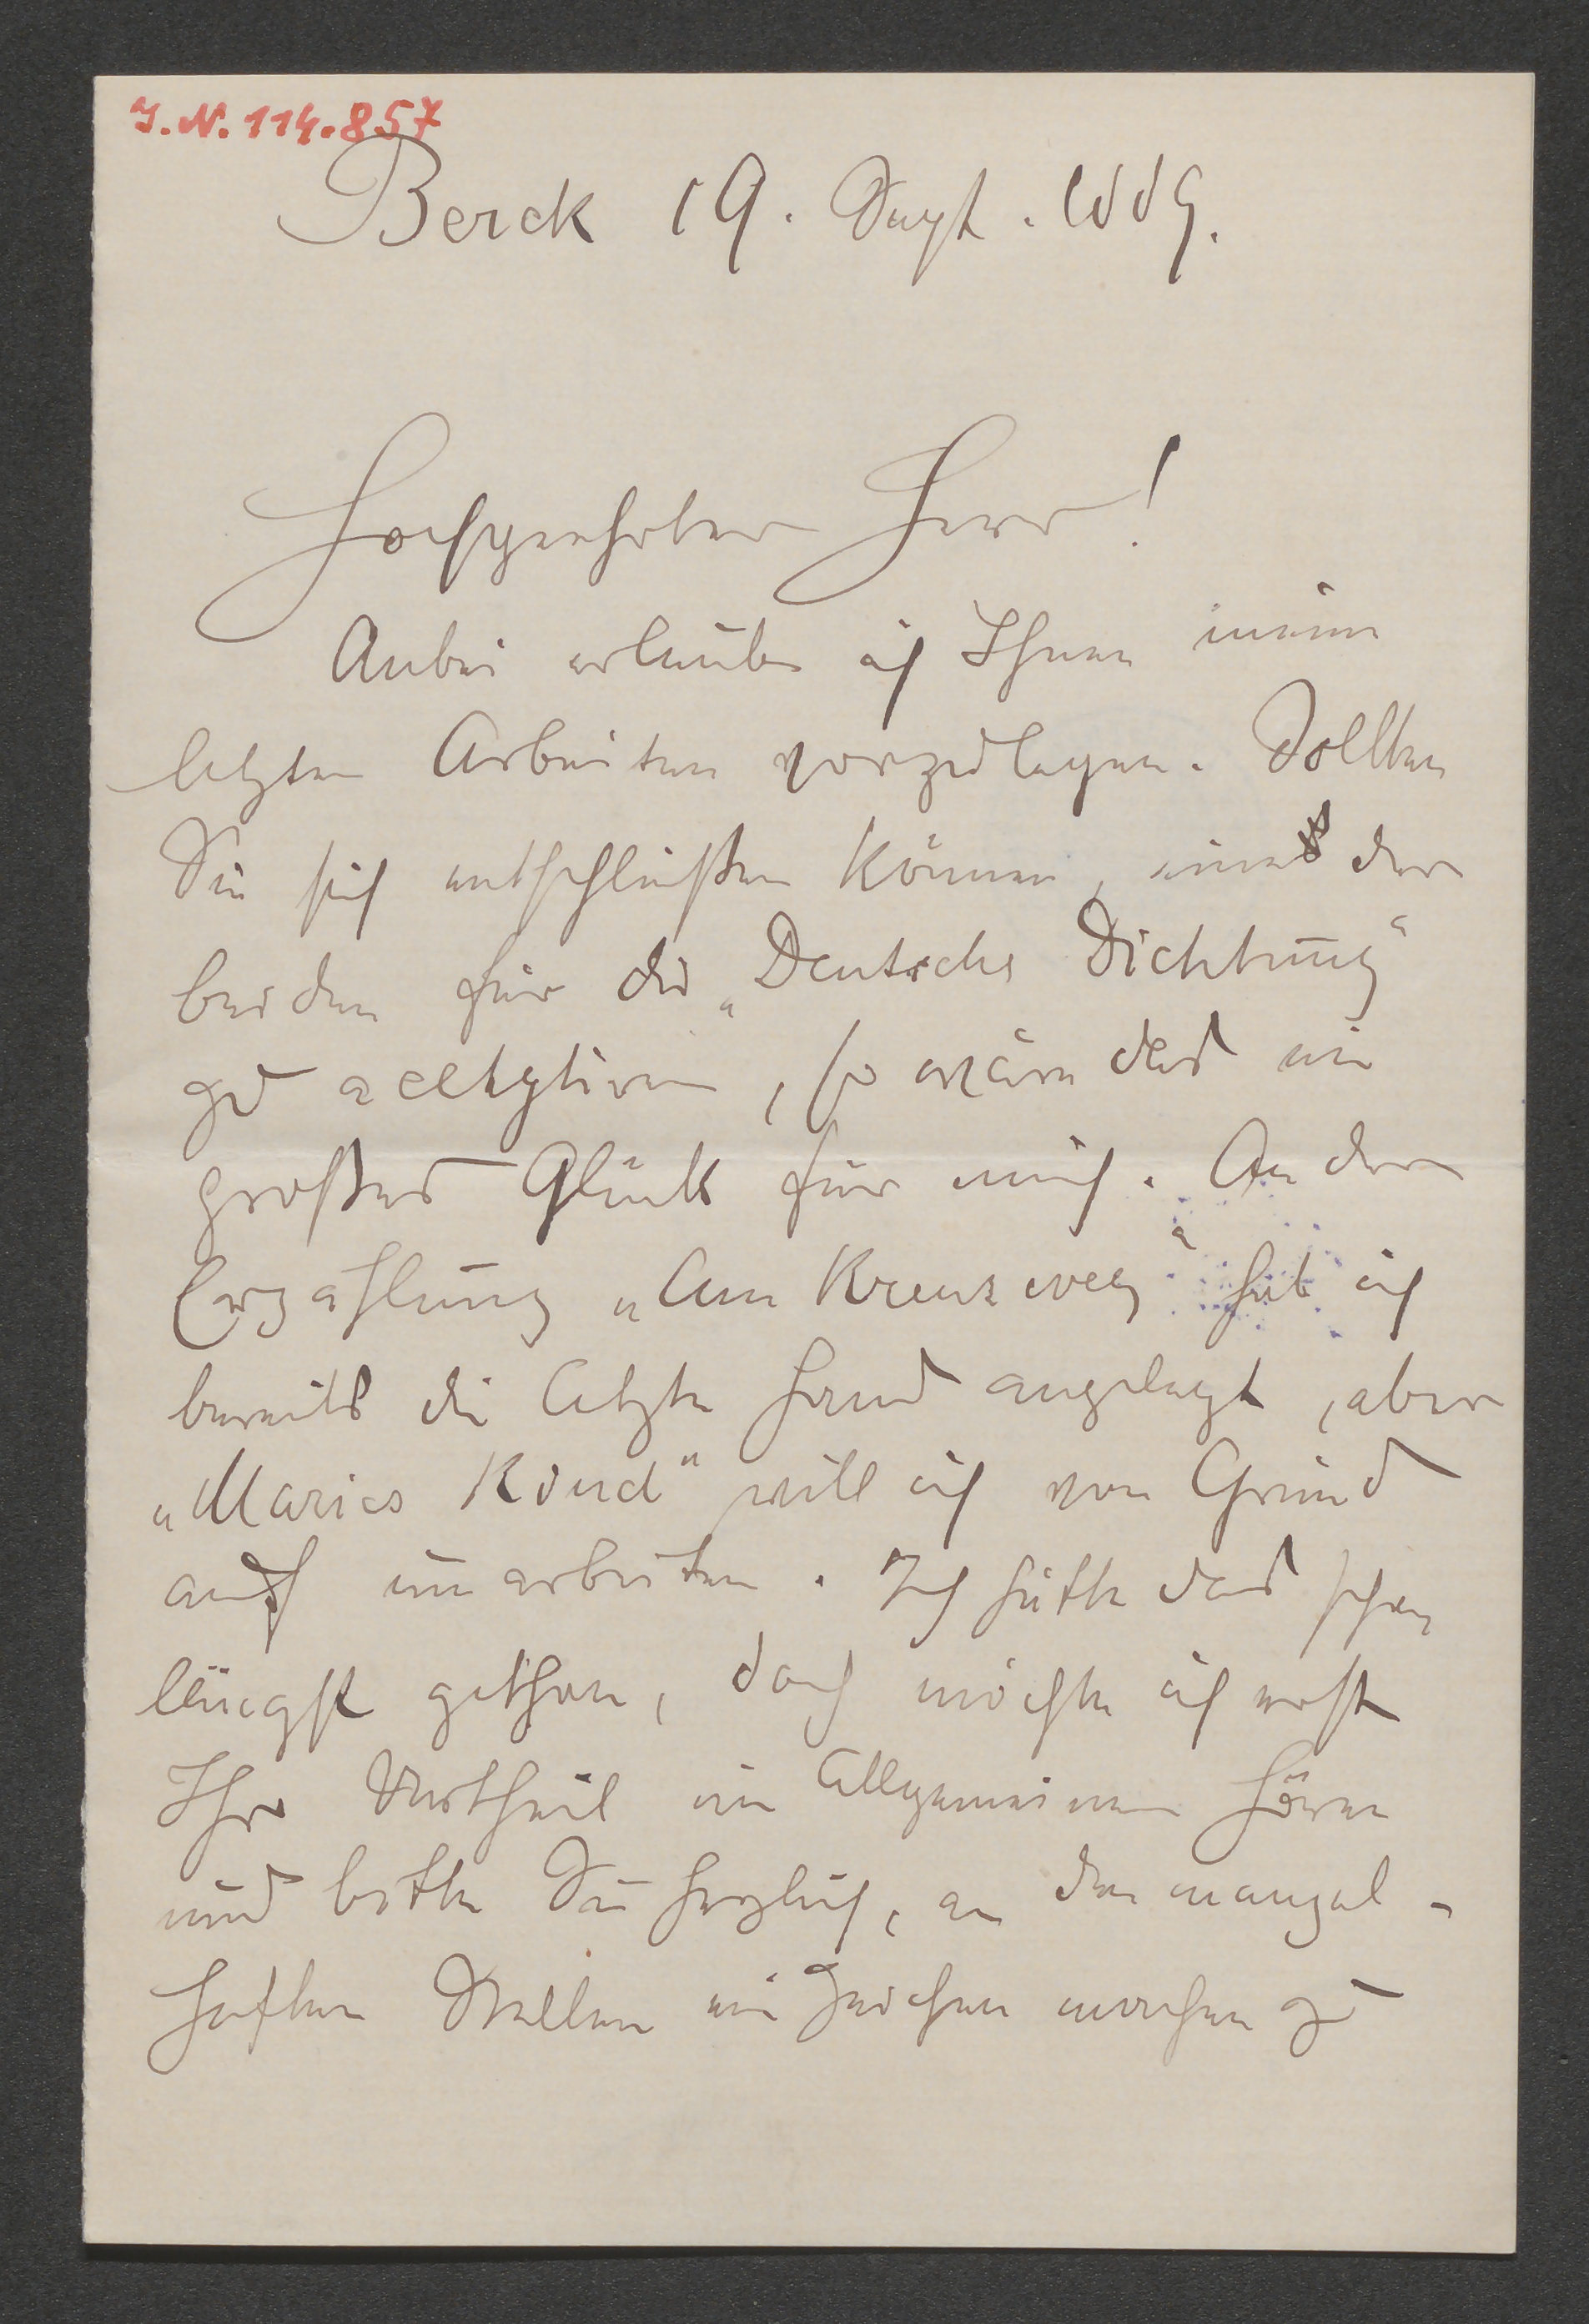 I.N. 114.857
Berck 19. Sept. 1889.
Hochgeehrter Herr!
Anbei erlaube ich Ihnen meine
letzten Arbeiten vorzulegen. Sollten
Sie sich entschließen können, eines der
beiden für die „Deutsche Dichtung“
zu acceptiren, so wäre das ein
großes Glück für mich. An der
Erzählung „Am Kreuzweg“ hab ich
bereits die letzte Hand angelegt, aber
„Maries Kind“ will ich von Grund
auf umarbeiten. Ich hätte das schon
längst gethan, doch möchte ich erst
Ihr Urtheil im Allgemeinen hören
und bitte Sie herzlich, an den mangel-
haften Stellen ein Zeichen machen zu